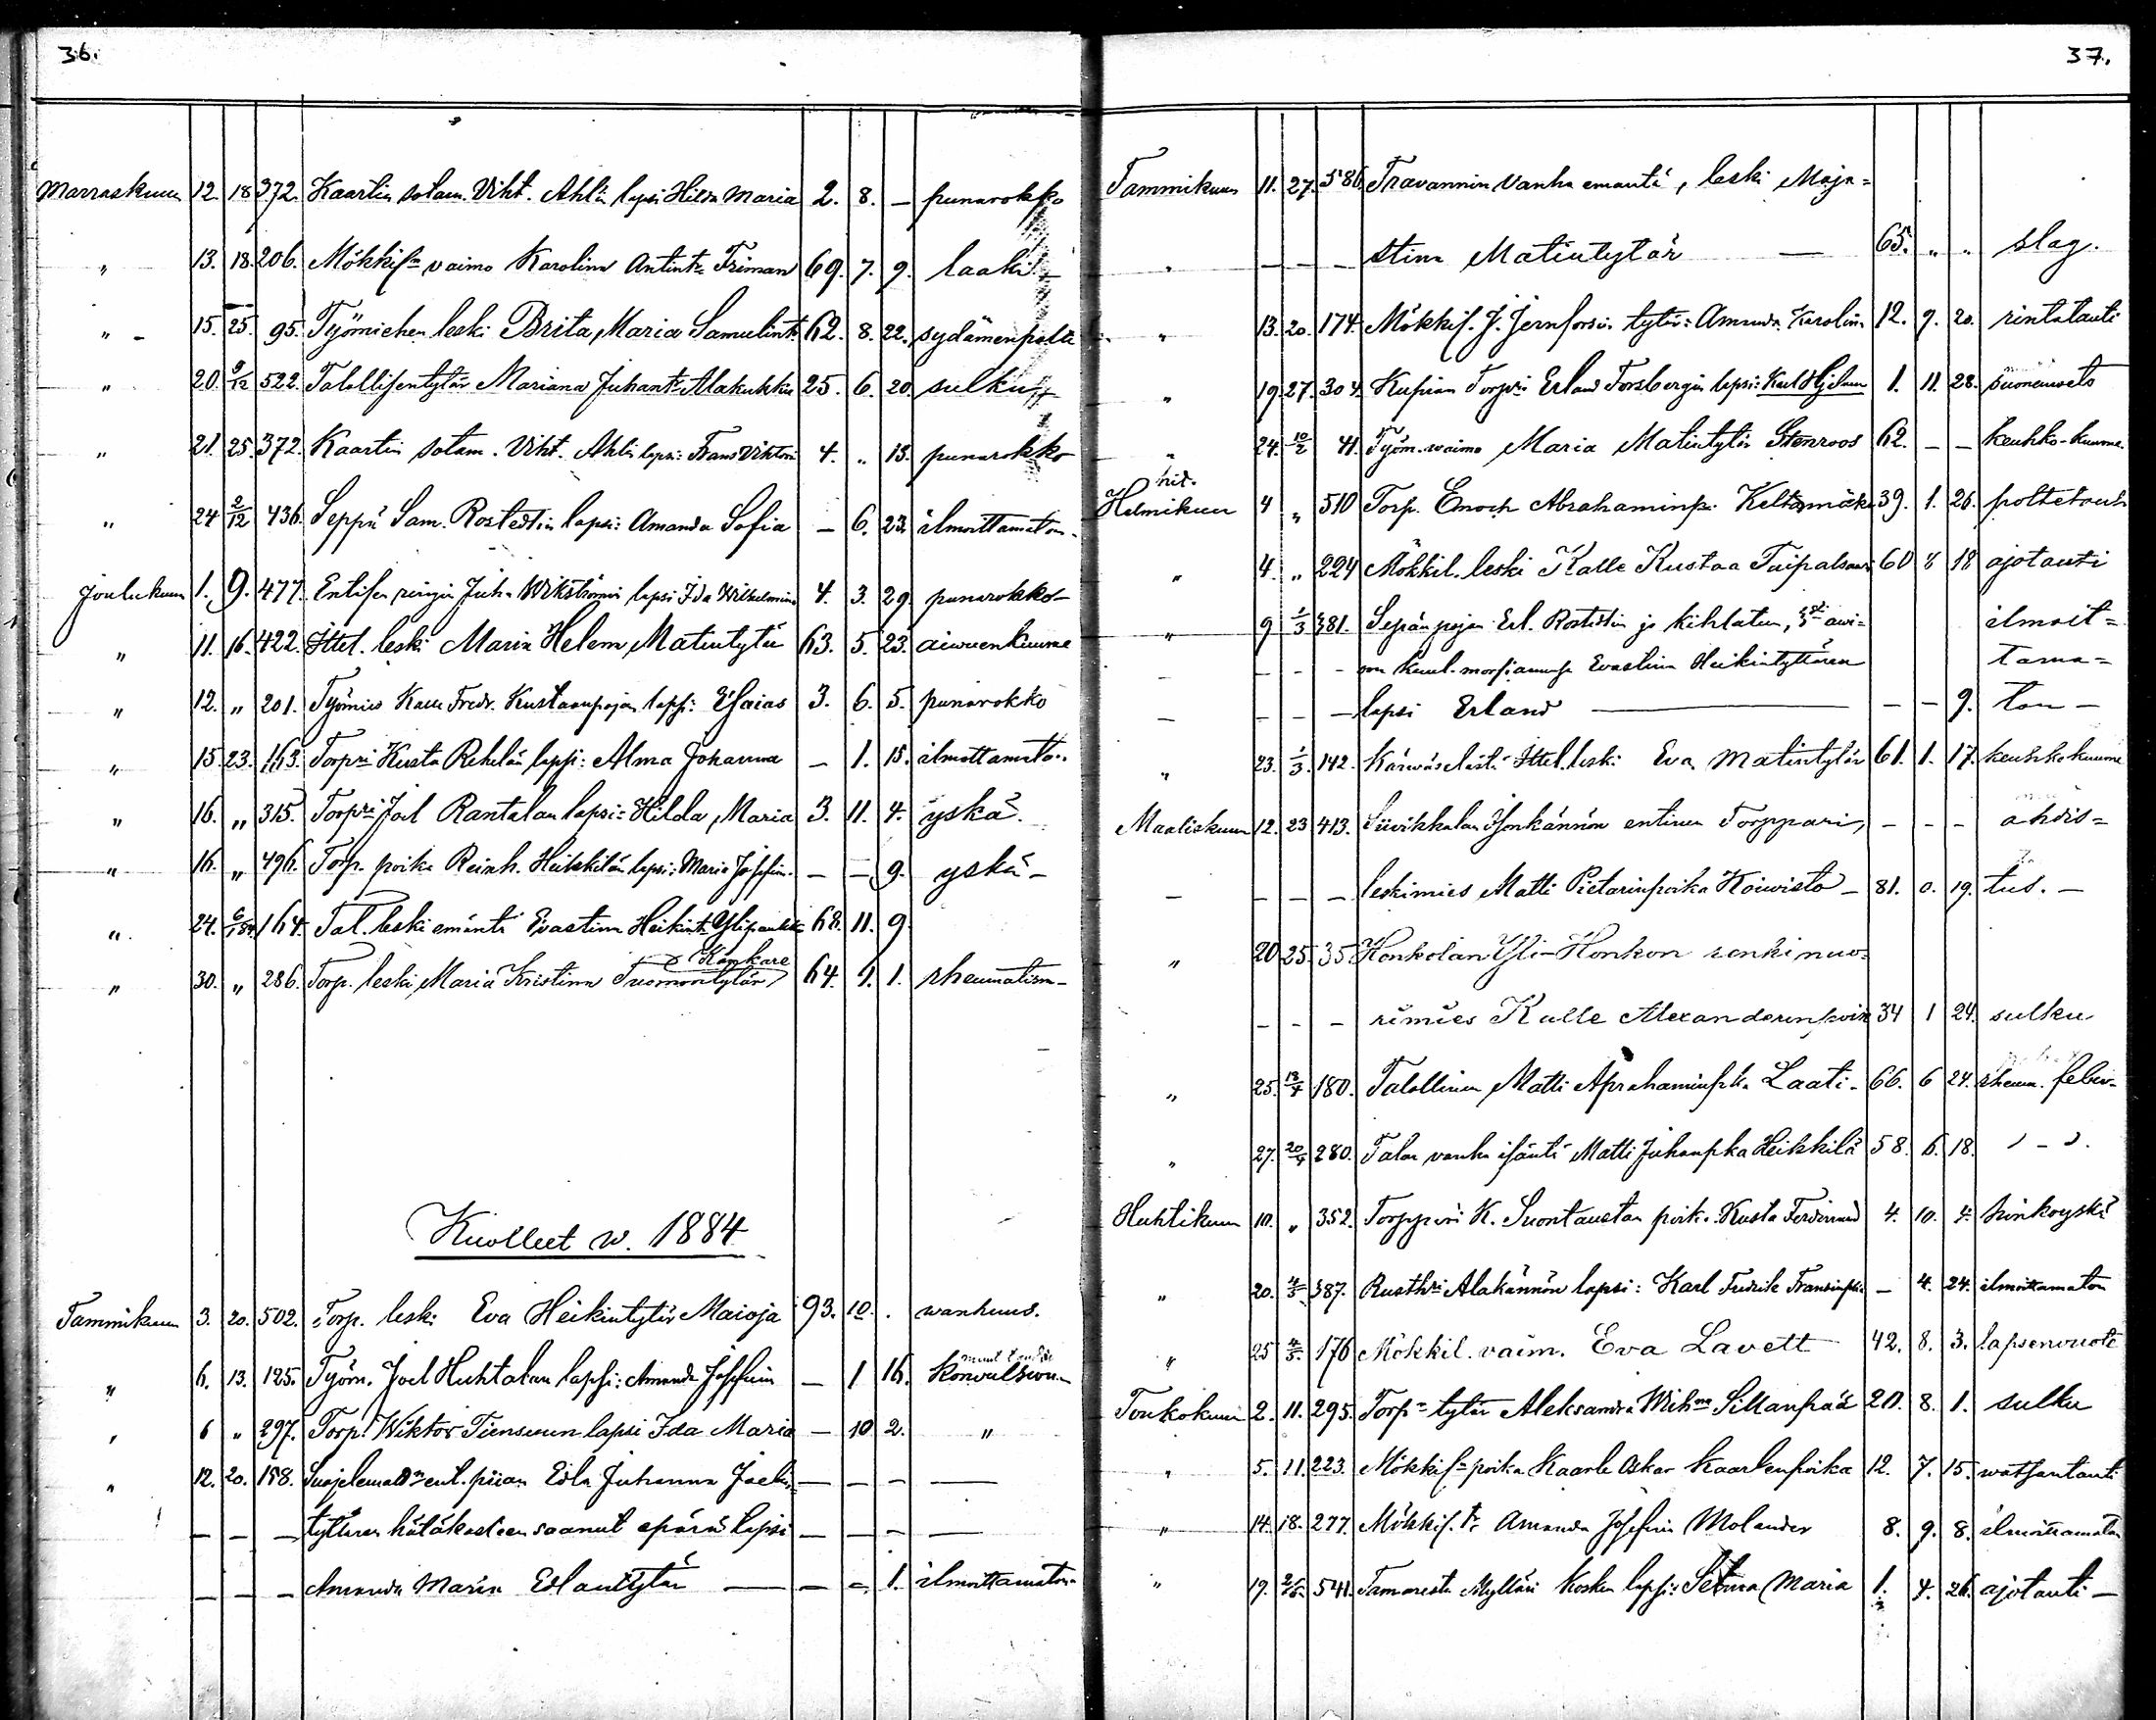 36.
Marraskuun 12. 18 372. Kaartin sotam. Viht. Ahlin lapsi Hilda Maria 2. 8. – punarokko
„ 13. 18. 206. Mökkis:n vaimo Karolina Antint:r Friman 69. 7. 9. laaki
„ - 15. 25. 95. Työmiehen leski Brita Maria Samulint:r 62. 8. 22. sydämenpolte
„ 20. 9/12 522. Talollisentytär Mariana Juhant:r Alakukku 25. 6. 20. sulku
„ 21. 25. 372. Kaartin sotam. Viht. Ahlin lapsi: Frans Viktori 4. „ 15. punarokko
„ 24 2/12 436. Seppä Sam. Rostedtin lapsi: Amanda Sofia – 6. 23. ilmoittamaton.
Joulukuun 1. 9. 477. Entisen rengin Juha Wikströmin lapsi Ida Wilhelmina 4. 3. 29. punarokko-
„ 11. 16. 422. Ittel. leski Maria Helena Matintytär 63. 5. 23. aiwuenkuume
„ 12. „ 201. Työmies Kalle Fredr. Kustaanpojan lapsi: Esaias 3. 6. 5. punarokko
„ 15. 23. 163. Torpri Kusta Rehelän lapsi: Alma Johanna – 1. 15. ilmottamaton.
„ 16. „ 315. Torpri Joel Rantalan lapsi: Hilda Maria 3. 11. 4. yskä.
„ 16. „ 496. Torp. poika Reinh. Heikkilän lapsi: Maria Josefin. – – 9. yskä –
„ 24. 6/1 84. 164. Tal. leski emäntä Evastina Heikint:r Ylipaukku 68. 11. 9
Kankare
„ 30. „ 286. Torp. leski Maria Kristina Tuomontytär 64. 9. 1. rheumatism-
Kuolleet w. 1884
Tammikuun 3. 20. 502. Torp. leski Eva Heikintytär Maioja 93. 10. . wanhuus.
„ 6. 13. 125. Työm. Joel Huhtalan lapsi: Amanda Josefin – 1 16. Konvulsion-
„ 6 „ 297. Torp. Wiktor Tiensuun lapsi Ida Maria – 10 2. „
„ 12. 20. 158. Suojelematt:n ent. piian Edla Juhanna Joelin – – – –
– – – tyttären hätäkasteen saanut epäräs lapsi – – – –
– – – Amanda Maria Edlantytär – – – 1. ilmoittamaton
37.
Tammikuun 11. 27. 586 Travannin Vanha emäntä, leski Maja=
„ – – – stina Matintytär – 65. „ „ slag.
„ 13. 20. 174. Mökkis. J. Jernforsin tytär: Amanda Karolina 12. 9. 20. rintatauti
„ 19. 27. 304. Kupian Torpri Erland Forsbergin lapsi: Karl Hjelmar 1. 11. 28. suonenveto
„ 24. 10/2 41. Työm. vaimo Maria Matintytär Stenroos 62. – – keuhko-kuume.
Helmikuun 4 „ 510 Torp. Enoch Abrahaminp. Keltamäki 39. 1. 26. poltetauti
„ 4. „ 224 Mökkil. leski Kalle Kustaa Taipalsaari 60 8 18 ajotauti
„ 9 1/3 381. Sepän pojan Erl. Rostedtin ja kihlatun, awi- ilmoit=
– – – – son kuul. morsiamensa Evastina Heikintyttären tama=
– – – – lapsi Erland – – – 9. ton –
„ 23. 1/3. 142. Kärwäselästä Ittel. leski Eva Matintytär 61. 1. 17. keuhkokuume
Maaliskuun 12. 23 413. Siivikkalan Isonkännön entinen Torppari, – – – ahdis=
– – – – leskimies Matti Pietarinpoika Koiwisto – 81. 0. 19. tus. –
„ 20 25. 35. Honkolan Yli-Honkon renki nuo=
– – – rimies Kalle Alexanderinpoik. 34 1 24. sulku
„ 25. 13/4 180. Talollinen Matti Aprahaminpka Laati- 66. 6 24. rheum. feber-
„ 27. 20/4 280. Talon vanha isäntä Matti Juhanpka Heikkilä 58. 6. 18. „ - „.
Huhtikuun 10. „ 352. Torpparin K. Suontaustan poik. Kusta Ferdinand 4. 10. 4. hinkuyskä
„ 20. 4/5 387. Rusth:ri Alakännön lapsi: Karl Fredrik Fransinp. – 4. 24. ilmoittamaton
„ 25 4/5. 176 Mökkil. vaim. Eva Lavett 42. 8. 3. lapsenvuote
Toukokuun 2. 11. 295. Torp:n tytär Aleksandra Wilh:na Sillanpää 20. 8. 1. sulku
„ 5. 11. 223. Mökkis:n poika Kaarle Oskar Kaarlenpoika 12. 7. 15. watsantauti
„ 14. 18. 277. Mökkis. t:r Amanda Josefina Molander 8. 9. 8. ilmoittamaton
„ 17. 25/5. 541. Tamarista Myllärin Kosken lapsi: Selma Maria 1. 4. 26. ajotauti –